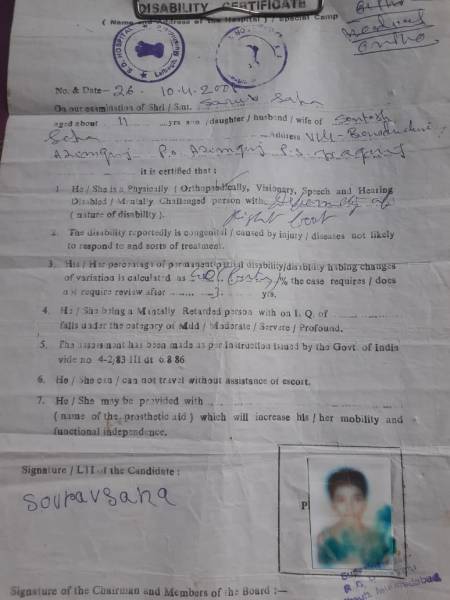 DISABILITY CERTIFICATE
( Name and Address of the Hospital ) / Special Camp
S.D. HOSPITAL
Lalbagh
Ortho
Medical
Ortho
No. & Date— 26. 10.4.200
On our examination of Shri / Smt. Saurav Saha
aged about 11 ...yrs son / daughter / husband / wife of Santosh
Saha address Vill-
Azimganj P.o Azimganj P.s.
it is certified that :
1. He / She is a Physically ( Orthopaedically, Visionary, Speech and Hearing
Disabled / Mentally Challenged person with Deformity of
( nature of disability ). Right foot
2. The disability reportedly is congenital / caused by injury / diseases not likely
to respond to and sorts of treatment.
3. His / Her percentage of permanent partial disability/disability habing changes
of variation is calculated as % the case requires / does
not require review after ........ yrs.
4. He / She bring a Mentally Retarded person with on I. Q. of
falls under the category of Mild / Moderate / Servere / Profound.
5. The assessment has been made as per instruction issued by the Govt. of India
vide no 4-2/83 III dt 6.8 86
6. He / She can / can not travel without assistance of escort.
7. He / She may be provided with
( name of the prosthetic aid ) which will increase his / her mobility and
functional independence.
Signature / LTI of the Candidate :
Souravsaha
P
Signature of the Chairman and Members of the Board :—